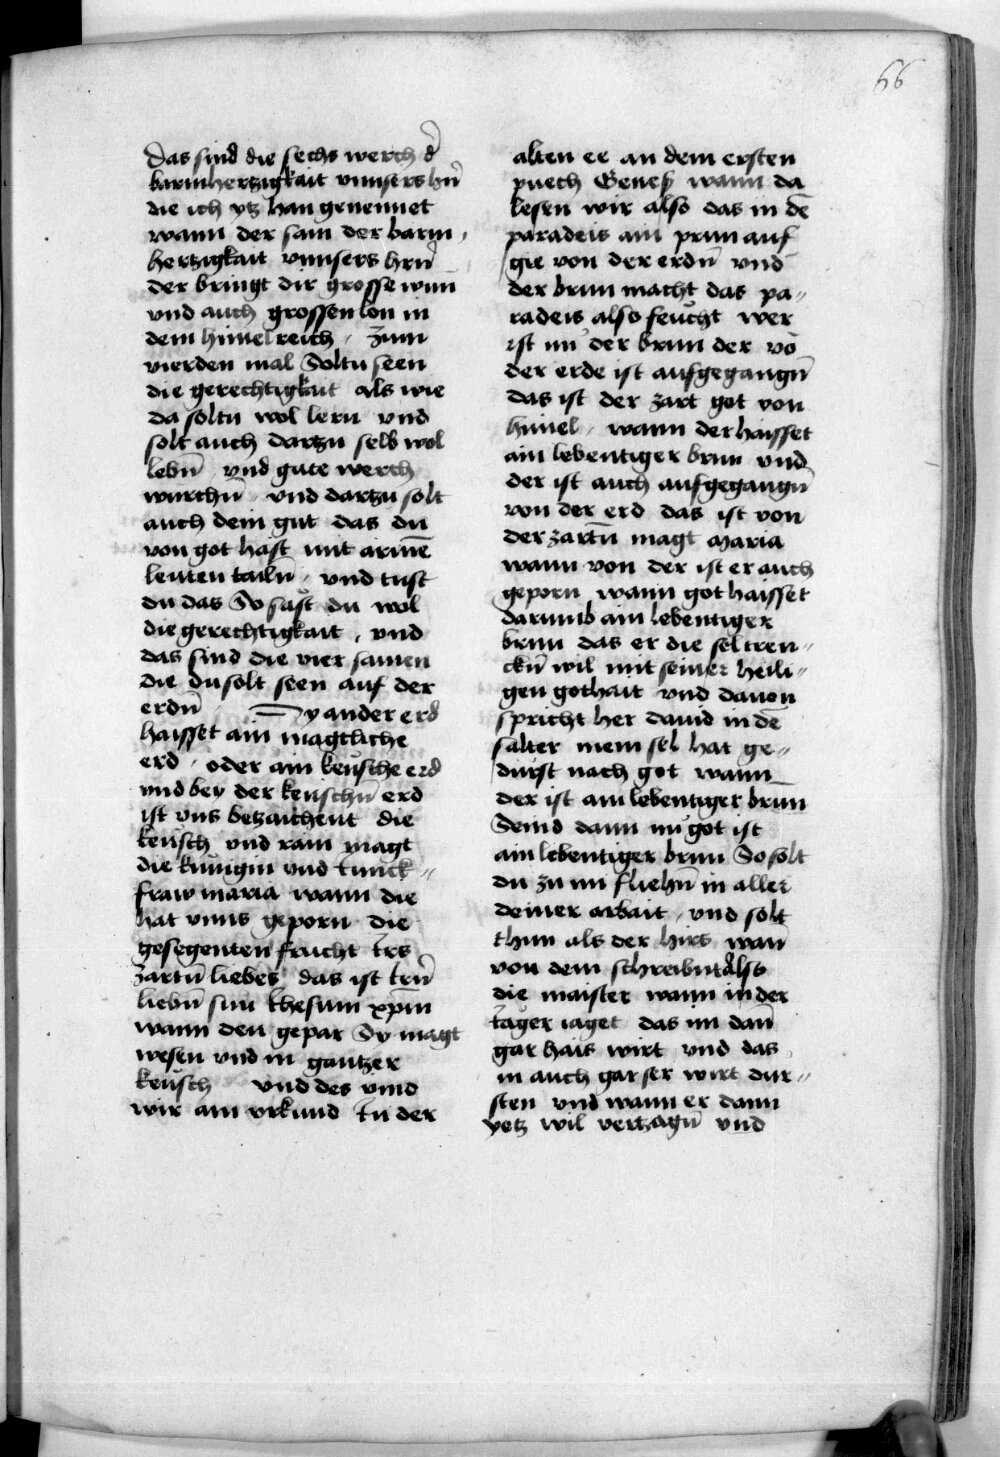 66
Das sind die sechs werch d̾
barmhertzigkait vnnsers hrn̄
die ich ytz han genennet
wann der sam der barm,
hertzigkait vnnsers hrrn̄
der bringt dir grosse wun̄
vnd auch grossen lon in
dem himelreich · Zum
vierden mal Soltu seen
die gerechtigkait als wie
da soltu wol lern vnd
solt auch dartzu selb wol
lebn̄ vnd gute werch
wurchn̄ · vnd dartzu solt
auch dein gut das du
von got hast mit arme̅
leuten tailn̄ · vnd tust
du das So sast du wol
die gerechtigkait , vnd
das sind die vier samen
die du solt seen auf der
erdn̄ · Dy ander erd
haisset ain magtliche
erd · oder ain keusche erd
vnd bey der keuschn̄ erd
ist vns betzaichent die
keusch vnd rain magt
die kunigin vnd Junck-
fraw maria wann die
hat vnns geporn die
gesegenten frucht Irs
zartn̄ liebes das ist Irn̄
liebn̄ sun Jhesum xp̅m
wann den gepar Sy magt
wesen vnd in gantzer
keusch vnd des vind
wir ain vrkund In der
alten ee an dem ersten
puech Genes̄ wann da
lesen wir also das in de̅
paradeis ain prun auf
gie von der erdn̄ vnd
der brun macht das pa-
radeis also feucht wer
ist nu der brun der vo̅
der erde ist aufgegangn̄
das ist der zart got von
himel · wann der haisset
ain lebentiger brun vnd
der ist auch aufgegangn̄
von der erd das ist von
der zartn̄ magt Maria
wann von der ist er auch
geporn wann got haisset
darumb ain lebentiger
brun das er die sel tren-
ckn̄ wil mit seiner heili-
gen gothait vnd dauon
spricht her dauid in de̅
salter mein sel hat ge-
durst nach got wann
der ist ain lebentiger brun̄
Seind dann nu got ist
ain lebentiger brun So solt
du zu im fliehn̄ in aller
deiner arbait · vnd solt
thun als der hirs wan̄
von dem schreibnt Also
die maister wann in der
Jager iaget das im dan̄
gar hais wirt vnd das
in auch gar ser wirt dur-
sten vnd wann er dann
yetz wil vertzagn̄ vnd